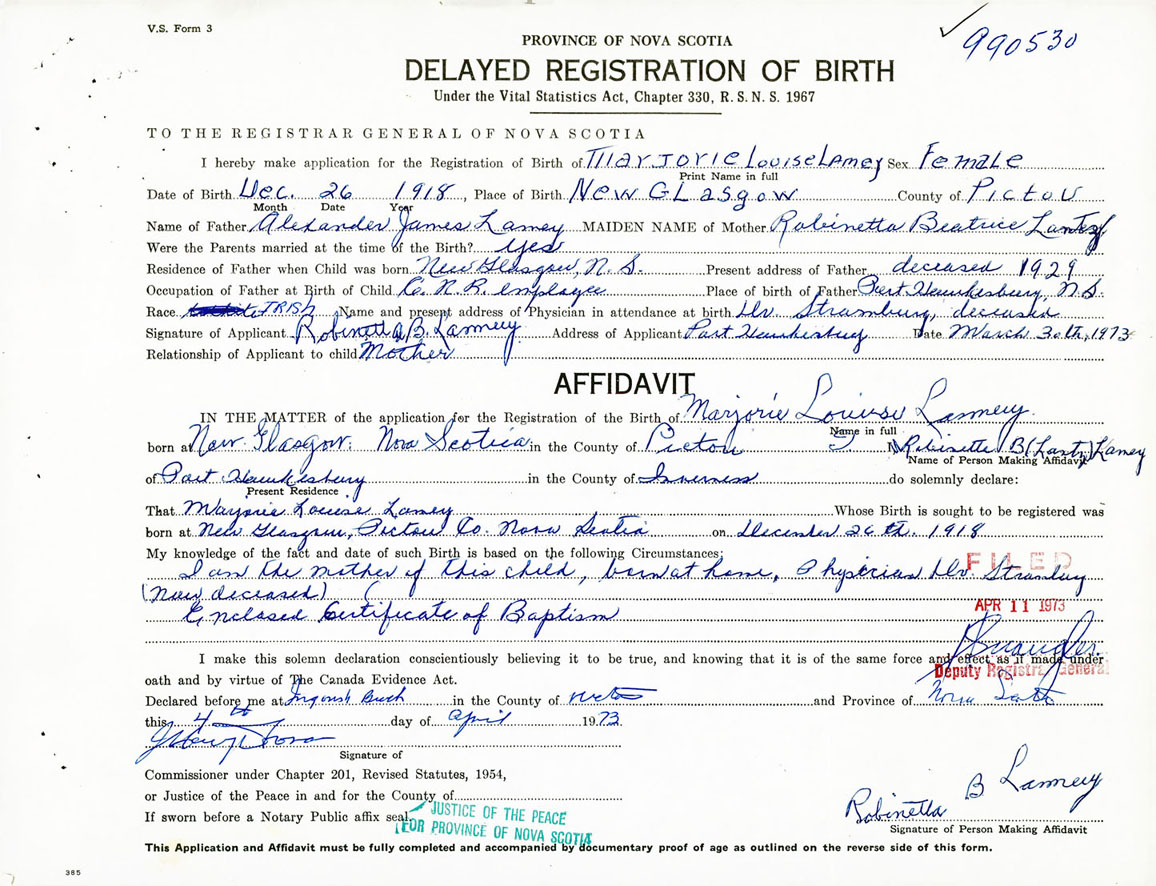 V.S. Form 3
990530
PROVINCE OF NOVA SCOTIA
DELAYED REGISTRATION OF BIRTH
Under the Vital Statistics Act, Chapter 330, R. S. N. S. 1967
TO THE REGISTRAR GENERAL OF NOVA SCOTIA
I hereby make application for the Registration of Birth of Marjorie Louise Lamey Sex Female
Print Name in full
Date of Birth Dec. 26 1918, Place of Birth New Glasgow County of Pictou
Month Date Year
Name of Father Alexander James Lamey MAIDEN NAME of Mother Robinetta Beatrice
Were the Parents married at the time of the Birth? Yes
Residence of Father when Child was born New Glasgow, N. S. Present address of Father deceased 1929
Occupation of Father at Birth of Child C. N. R. employee Place of birth of Father Port Hawkesbury, N.S.
Race IRISH Name and present address of Physician in attendance at birth Dr. deceased
Signature of Applicant Robinetta B. Lamey Address of Applicant Port Hawkesbury Date March 30th, 1973
Relationship of Applicant to child Mother
AFFIDAVIT
IN THE MATTER of the application for the Registration of the Birth of Marjorie Louise Lamey
Name in full
born at New Glasgow. Nova Scotia in the County of Pictou I, Robinetta B Lamey
Name of Person Making Affidavit
of Port Hawkesbury in the County of Inverness do solemnly declare:
Present Residence
That Marjorie Louise Lamey Whose Birth is sought to be registered was
born at New Glasgow, Pictou Co. Nova Scotia on December 26th. 1918
My knowledge of the fact and date of such Birth is based on the following Circumstances;
I am the mother of this child, born at home, Physician Dr.
(now deceased)
Enclosed Certificate of Baptism
FILED
APR 11 1973
I make this solemn declaration conscientiously believing it to be true, and knowing that it is of the same force and effect as if made under
Deputy Registrar General
oath and by virtue of The Canada Evidence Act.
Declared before me at in the County of and Province of Nova
this 4th day of April 1973
Signature of
Commissioner under Chapter 201, Revised Statutes, 1954,
or Justice of the Peace in and for the County of
If sworn before a Notary Public affix seal.
JUSTICE OF THE PEACE
FOR PROVINCE OF NOVA SCOTIA
Robinetta B Lamey
Signature of Person Making Affidavit
This Application and Affidavit must be fully completed and accompanied by documentary proof of age as outlined on the reverse side of this form.
385